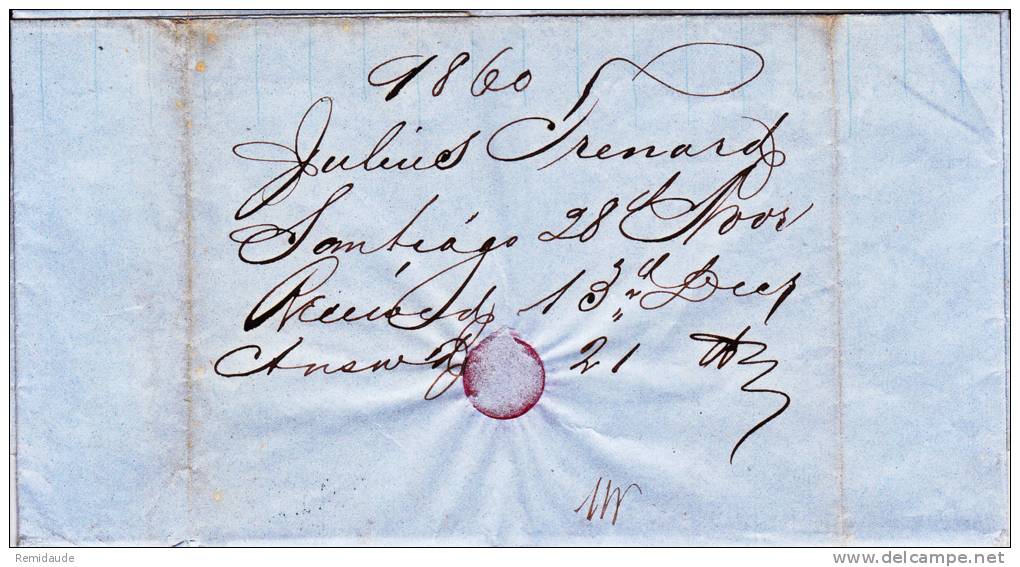 1860
Julius Trenard
Santiágo 28d Novr
Received 13rd Decr
Answ'd 21 do
Remidaude
www.delcampe.net